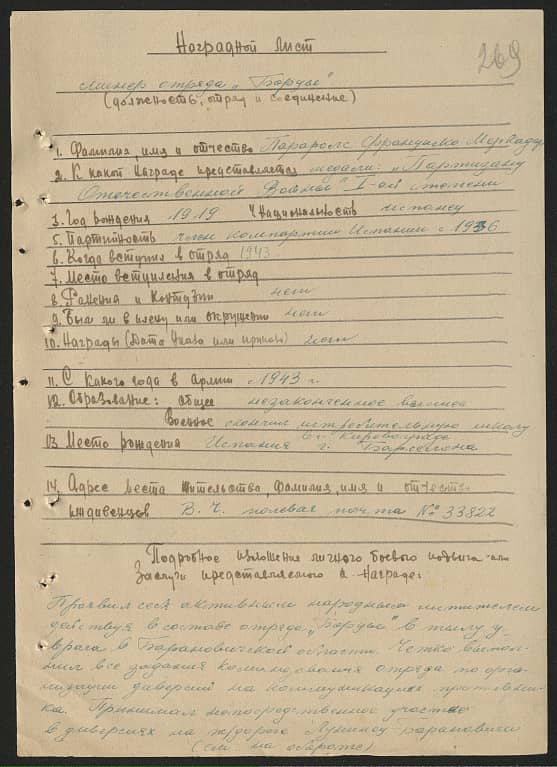 Наградной лист
269
минер отряда „Борцы"
(должность, отряд и соединение)
1. Фамилия, имя и отчество Франциско Меркадер
2. К какой награде представляется медали: „Партизану
Отечественной Войны" I-ой степени
3. Год рождения 1919 4. Национальность испанец
5. Партийность член компартии Испании с 1936
6. Когда вступил в отряд 1943
7. Место вступления в отряд
8. Ранения и контузии нет
9. Был ли в плену или окружении нет
10. Награды (Дата Указа или приказа) нет
11. С какого года в Армии с 1943 г.
12. Образование: общее незаконченное высшее
Военное окончил истребительную школу
в г. Кировограде
13. Место рождения Испания г. Барселона
14. Адрес места жительства, фамилия, имя и отчество
иждивенцев В. Ч. полевая почта № 33822
Подробное изложение личного боевого подвига или
заслуги представляемого к награде:
Проявил себя активным народным мстителем
действуя в составе отряда „Борцы" в тылу у
врага в Барановичской области. Четко выпол-
нил все задания командования отряда по орга-
низации диверсий на коммуникациях противни-
ка. Принимал непосредственное участие
в диверсиях на ж/дороге Лунинец-Барановичи
(см. на обороте)